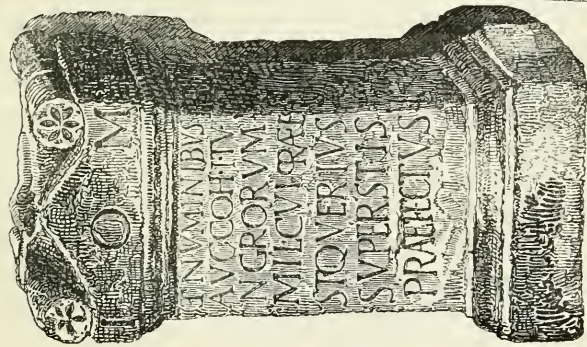 I O M
ET NVMINIBVS
AVG COH I TV
NGRORVM
MIL CVI PRÆE
ST Q VERIVS
SVPERSTIS
PRAEFECTVS